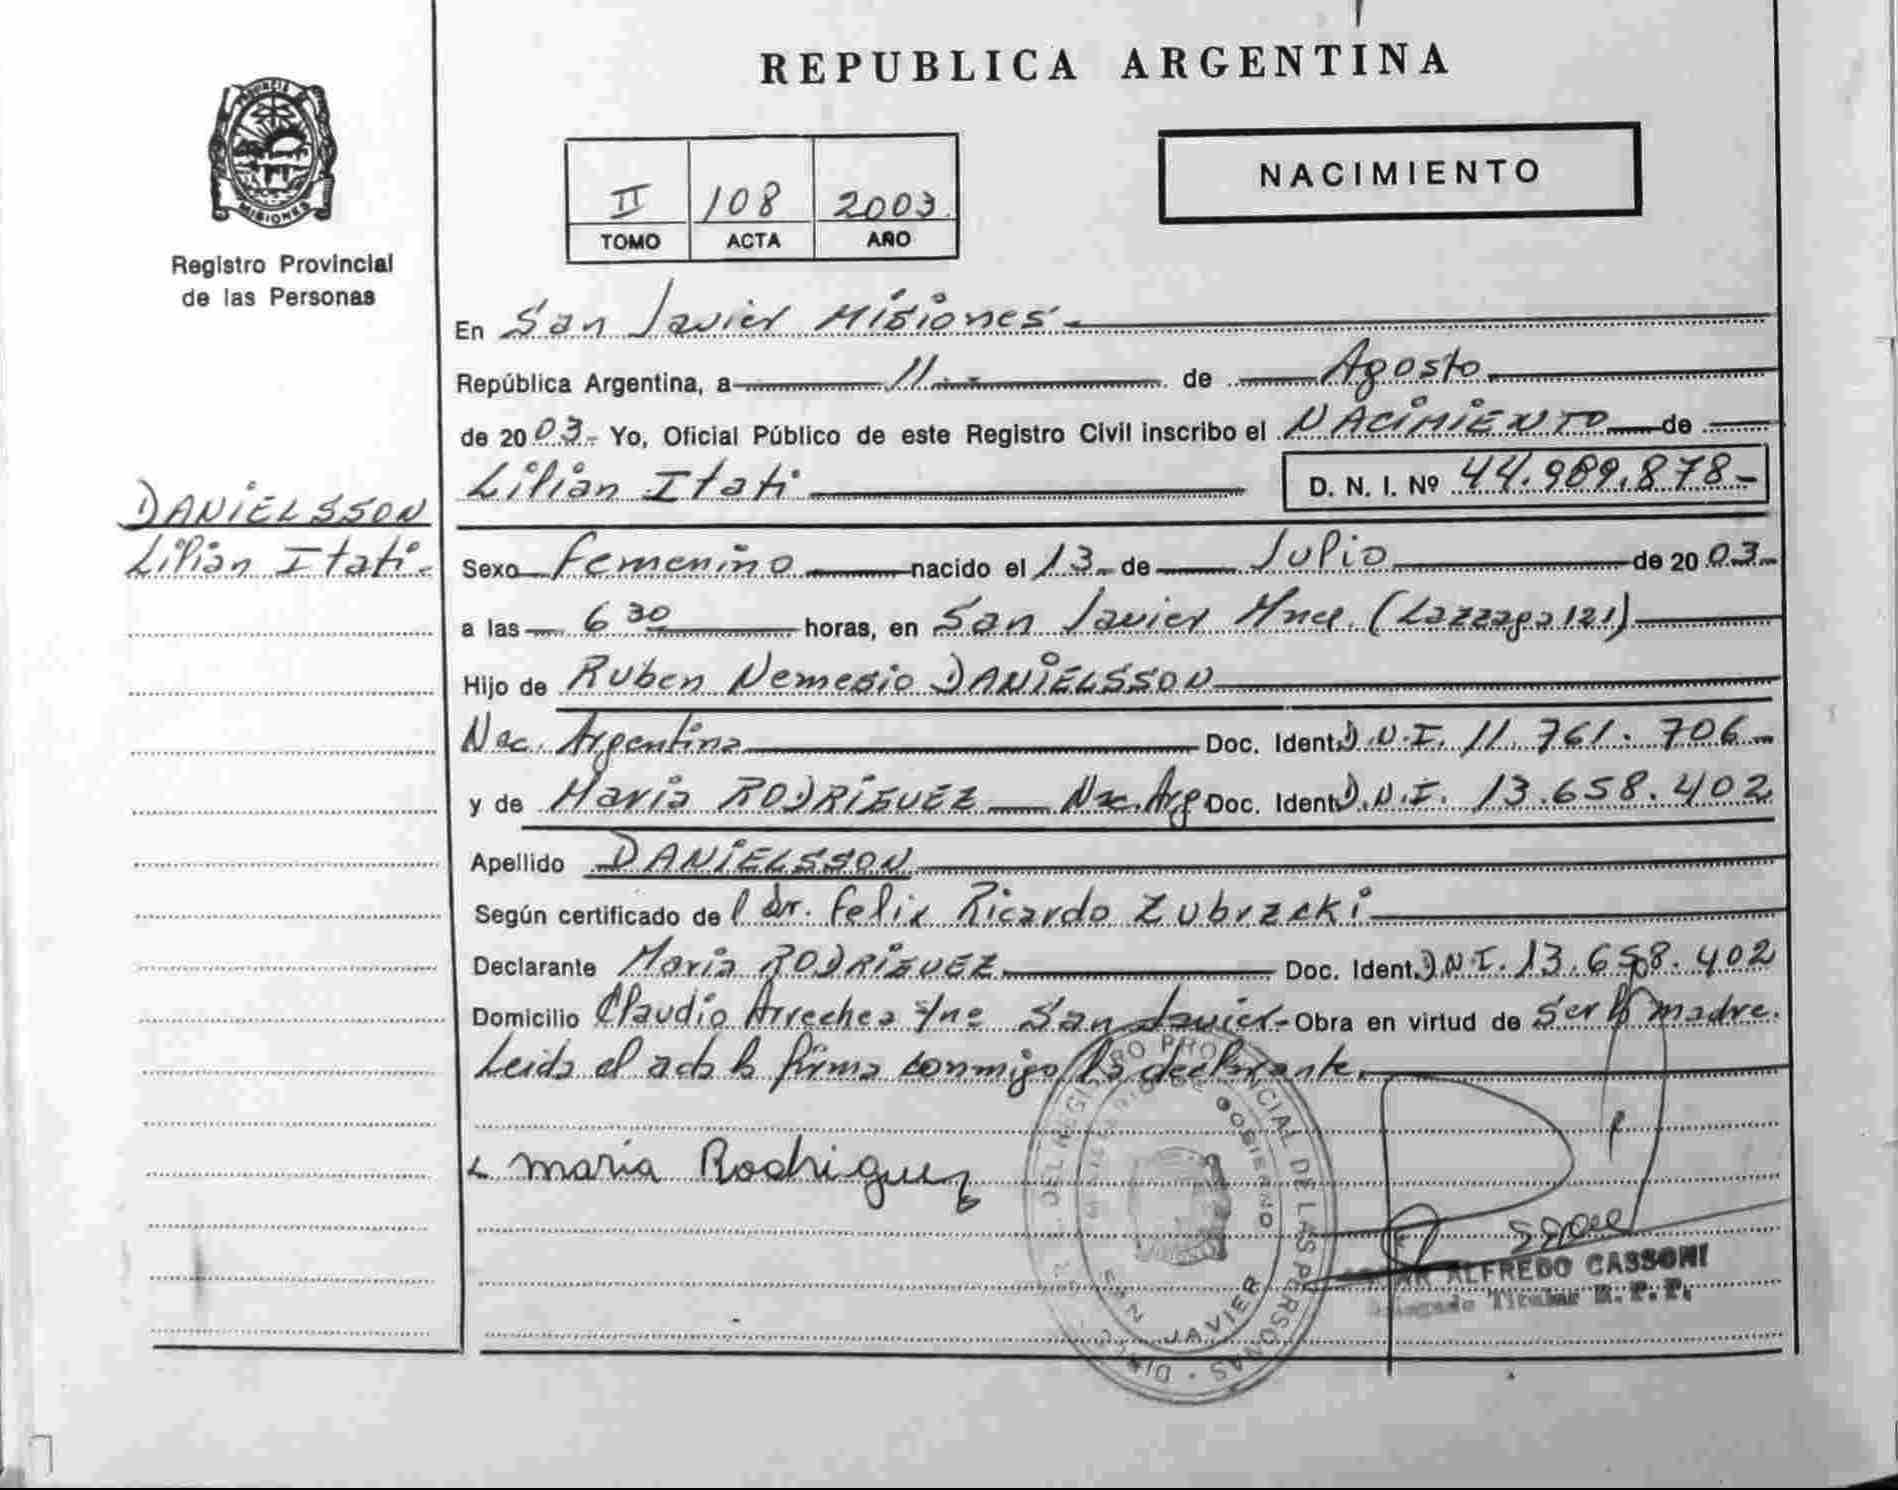 REPUBLICA ARGENTINA
PROVINCIA DE MISIONES
Registro Provincial
de las Personas
II 108 2003
TOMO ACTA AÑO
NACIMIENTO
En San Javier Misiones.-
República Argentina, a 11.- de Agosto
de 2003.- Yo, Oficial Público de este Registro Civil inscribo el NACIMIENTO de
Lilian Itati D. N. I. Nº 44.989.878-
DANIELSSON
Lilian Itati.-
Sexo Femenino nacido el 13 de Julio de 2003.-
a las 6 30 horas, en San Javier Mnes. (Lazzaga 121)
Hijo de Ruben Nemesio DANIELSSON
Nac. Argentina Doc. Ident. D.N.I. 11.761.706-
y de Maria RODRIGUEZ Nac. Arg Doc. Ident. D.N.I. 13.658.402
Apellido DANIELSSON
Según certificado del Dr. Felix Ricardo Zubrzcki
Declarante Maria RODRIGUEZ Doc. Ident. D.N.I. 13.658.402
Domicilio Claudio Arrechea s/nº San Javier.- Obra en virtud de ser la madre.
Leida el acta la firma conmigo la declarante.
Maria Rodriguez
DEL REGISTRO PROVINCIAL DE LAS PERSONAS
MINISTERIO DE GOBIERNO
SAN JAVIER
ALFREDO CASSONI
Delegado Titular R. P. P.